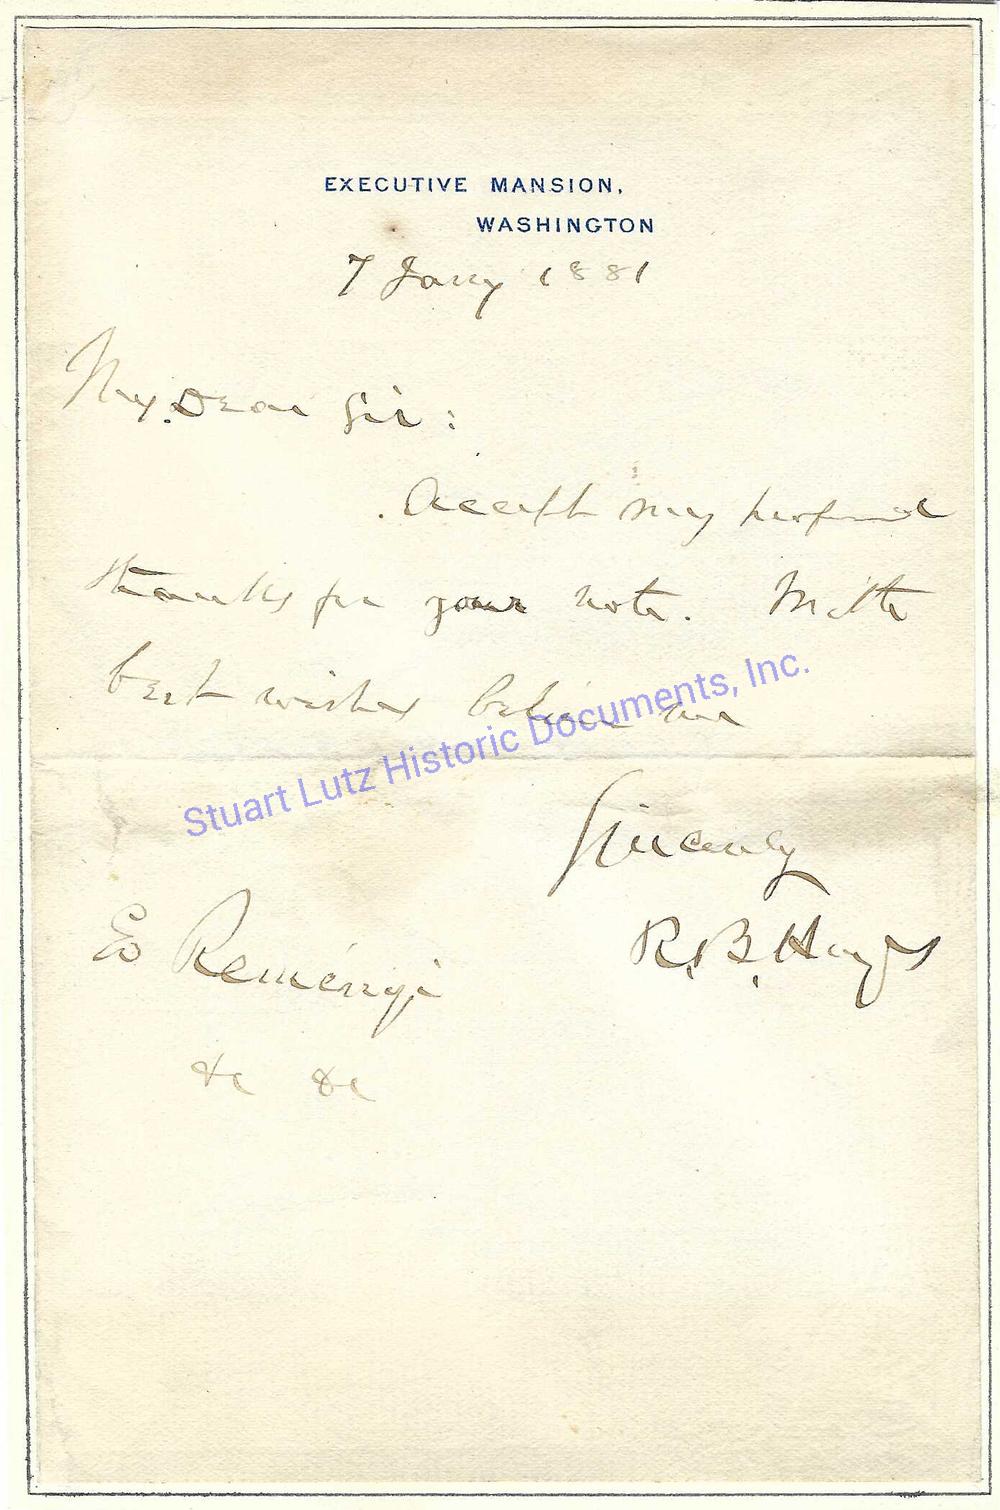 EXECUTIVE MANSION,
WASHINGTON
7 Jany 1881
My Dear Sir:
Accept my profound
thanks for your note. With
best wishes believe me
Stuart Lutz Historic Documents, Inc.
Sincerely
R. B. Hayes
Ed Reményi
&c &c